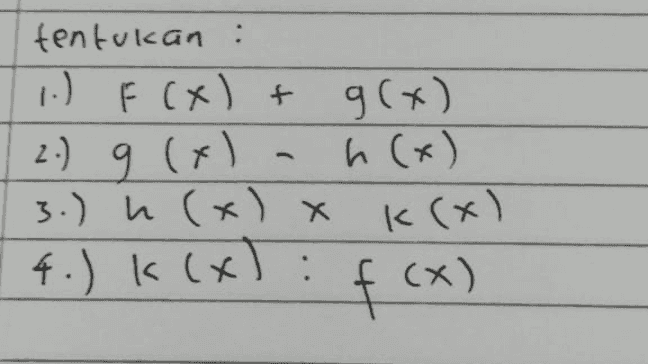 tentukan :
1.) F (x) + g(x)
2.) g (x) - h (x)
3.) h (x) x k (x)
4.) k (x) : f (x)